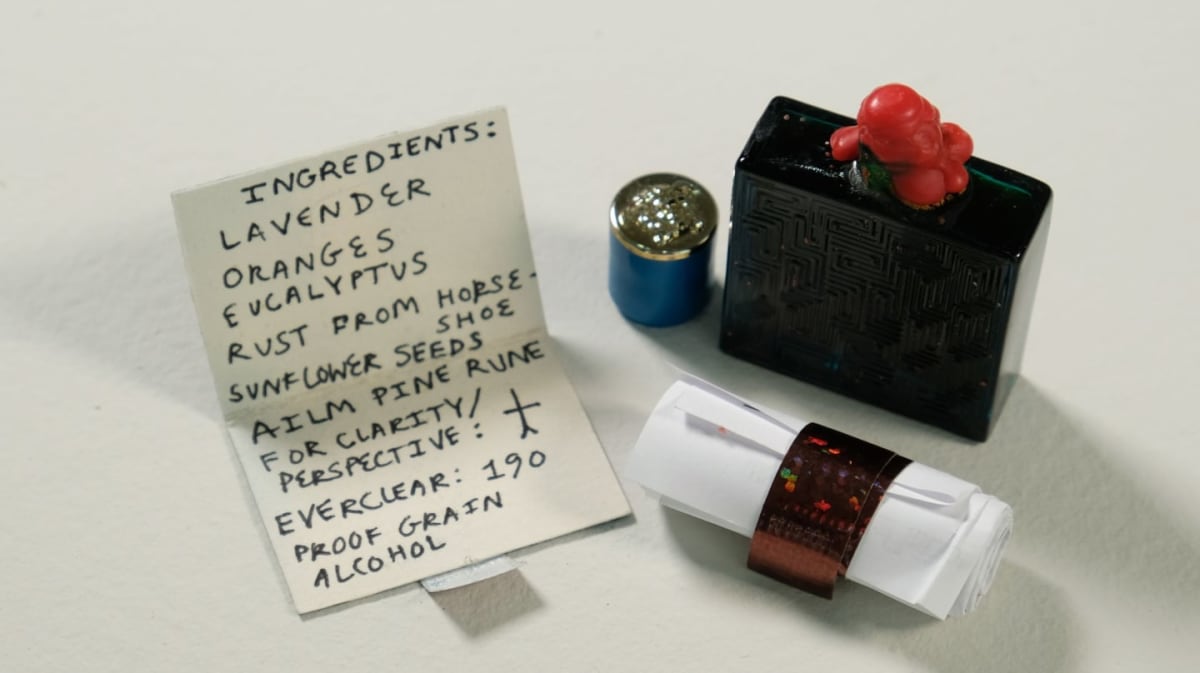 INGREDIENTS:
LAVENDER
ORANGES
EUCALYPTUS
RUST FROM HORSE-
SHOE
SUNFLOWER SEEDS
AILM PINE RUNE
FOR CLARITY/
PERSPECTIVE:
EVERCLEAR: 190
PROOF GRAIN
ALCOHOL